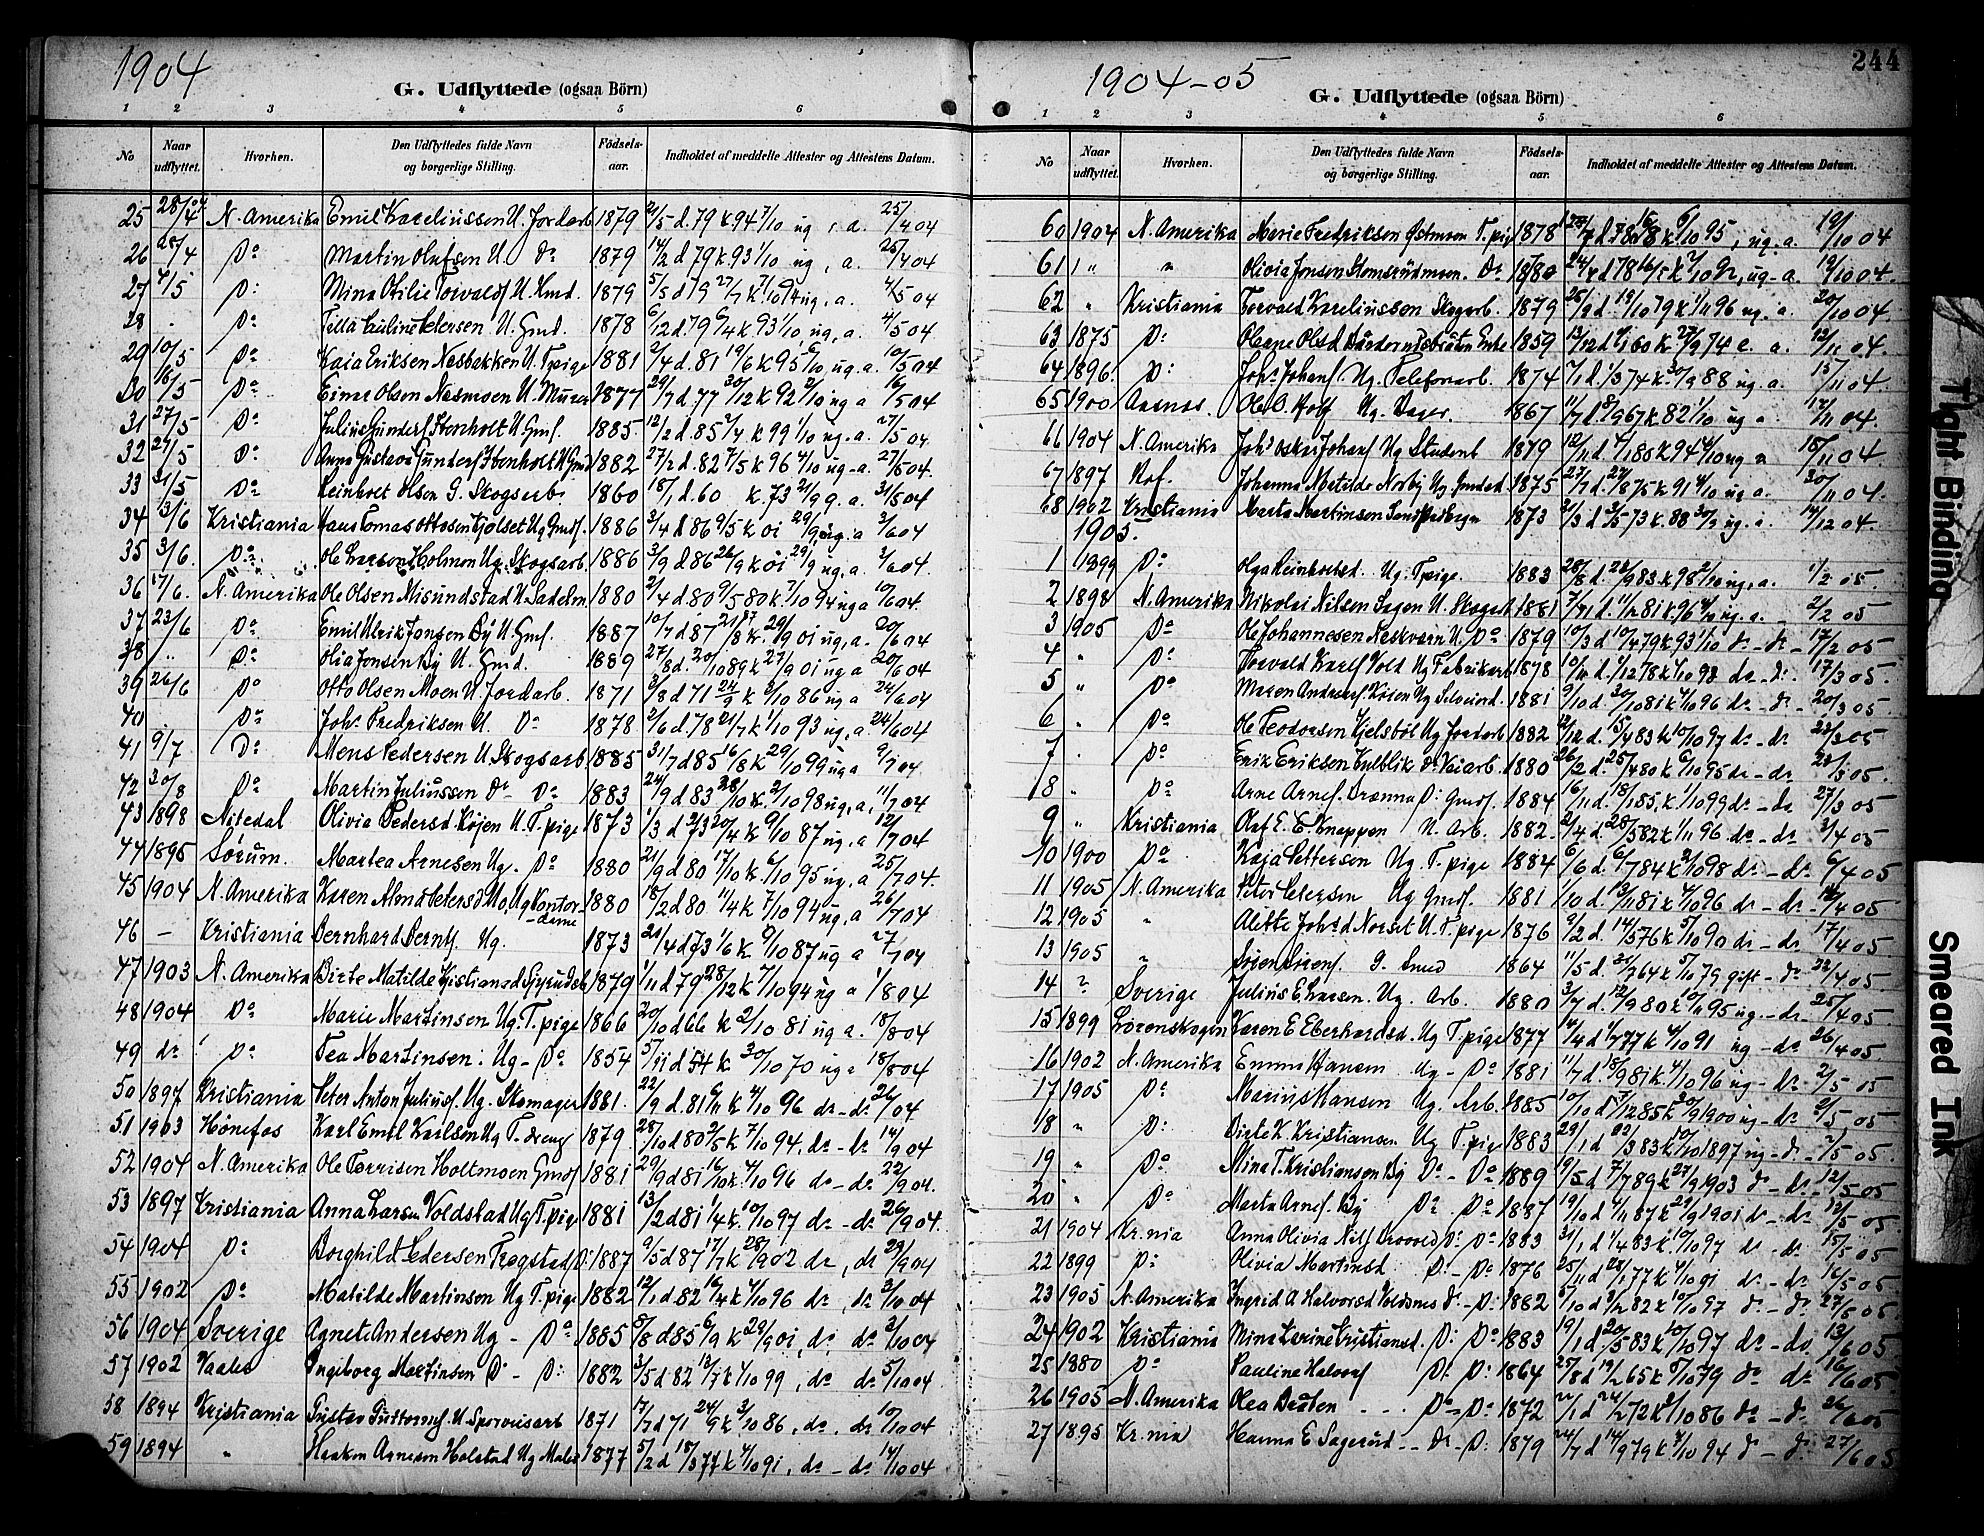 1904
G. Udflyttede (ogsaa Börn)
1 2 3 4 5 6
No Naar udflyttet. Hvorhen. Den Udflyttedes fulde Navn og borgerlige Stilling. Födsels-aar. Indholdet af meddelte Attester og Attestens Datum.
25 28/4 04 N. Amerika Emil Kareliussen U. Jordarb 1879 d. 79 k 94 7/10 ug. a. 25/4 04
26 28/4 Do Martin Olufsen U. Do 1879 14/2 d. 79 k 93 1/10 ug, a. 25/4 04
27 4/5 Do Mina Otilie U. 1879 5/5 d 79 27/7 k 7/10 94 ug, a. 4/5 04
28 Do Pedersen U. Gmd. 1878 6/12 d. 79 6/4 k 93 1/10 ug, a. 4/5 04
29 10/5 Do Kaia Eriksen Næsbakken U. T.pige 1881 2/4 d. 81 19/6 k 95 ug. a. 10/5 04
30 16/5 Do Einar Olsen Næsmoen U. Murer 1877 29/7 d. 77 30/12 k 92 2/10 ug a 16/5 04
31 27/5 Do Julius Gunders. Stenholt U. Gms. 1885 12/2 d. 85 2/4 k 99 1/10 ug. a. 27/5 04
32 27/5 Do Anna Gustava Gunders. Stenholt U Gmd 1882 27/2 d. 82 7/5 k 96 4/10 ug. a. 27/5 04.
33 31/5 Do Reinholt Olsen G. Skogsarb 1860 18/1 d. 60 k. 73 21/9 g. a. 31/5 04
34 3/6 Kristiania Hans Tomas Ottosen Kjølset Ug Gms. 1886 3/4 d 86 9/5 k 01 29/9 ug. a 3/6 04
35 3/6. Do Ole Larsen Holmen Ug. Skogsarb. 1886 3/9 d 86 26/9 k 01 29/9 ug, a. 3/6 04.
36 17/6. N. Amerika Ole Olsen Misundstad U. Sadelm. 1880 2/4 d 80 9/5 80 k. 7/10 94 ug a 10/6 04.
37 23/6 Do Emil Ulrik Jonsen By U. Gms. 1887 10/7 d 87 21/8 k. 29/9 01 ug, a. 20/6 04
38 " Do Olia Jonsen By U. Gmd. 1889 27/8 d. 20/10 89 k 27/9 01 ug a 20/6 04
39 26/6 Do Otto Olsen Moen U. Jordarb. 1871 3/8 d 71 24/9 k 2/10 86 ug a 24/6 04
40 Do Johs Fredriksen U. Do 1878 2/6 d. 78 21/7 k 1/10 93 ug, a. 24/6 04
41 9/7 Do Mens Pedersen U Skogsarb. 1885 31/7 d 85 16/8 k 29/10 99 ug a 9/7 04
42 20/8 Do Martin Juliussen Do Do 1883 24/9 d 83 28/10 k. 2/10 98 ug, a, 11/7 04
43 1898 Nitedal Olivia Pedersd Kojen U. T. pige 1873 1/3 d 2/3 20/4 k 9/10 87 ug, a 12/7 04
44 1895 Sørum. Martea Arnesen Ug. Do 1880 21/9 d 80 17/10 k. 6/10 95 ug, a 25/7 04.
45 1904 N. Amerika Karen Petersd Ug Kontor- 1880 18/2 d 80 11/4 k 7/10 94 ug, a 26/7 04
-dame
46 — Kristiania Bernhard Bernts. Ug. 1873 21/4 d 73 1/6 k 9/10 87 ug a 27/7 04
47 1903 N. Amerika Birte Matilde Kristiansd 1879 1/11 d 79 28/12 k 7/10 94 ug a 1/8 04
48 1904 Do Marie Martinsen Ug. T. pige 1866 20/10 d 66 k 2/10 81 ug a. 18/8 04
49 do Do Tea Martinsen: Ug - Do 1854 5/11 d 54 k 30/10 70 ug a 18/8 04
50 1897 Kristiania Peter Anton Julius. Ug. Skomager 1881. 22/9 d. 81 6/11 k 4/10 96 do - do 26/ 04
51 1903 Hønefos Karl Emil Karlsen Ug T-dreng 1879. 28/10 d 80 2/5 k 7/10 94, do - do 14/9 04
52 1904 N. Amerika Ole Torrisen Holtmoen Gmds 1881 29/9 d 81 16/10 k. 4/10 96 do - do 22/9 04.
53 1897 Kristiania Anna Larsen Voldstad Ug T. pige 1881 13/2 d 81 1/4 k. 10/10 97 do - do 26/9 04.
54 1904 Do Borghild Pedersen Frogstad Do 1887 9/5 d 87 17/7 k 28/9 1902 do, do 29/9 04
55 1902 Do Matilde Martinson Ug T. pige 1882 12/1 d 82 16/4 k 4/10 96 do, do 3/10 04
56 1904 Sverige Agnete Andersen Ug - Do 1885 8/8 d 85 6/9 k 29/9 01, do, do 3/10 04
57 1902 Vaaler Ingeborg Martinsen Do - Do 1882 3/5 d 82 k 4/10 99, do do 5/10 04
58 1894 Kristiania Gustav Guttorms U. Sporveisarb 1871 17/7 d 71 24/9 k 3/10 86, do, do 10/10 04
59 1894 " Haakon Arnesen Holstad Ug Maler 1877 5/2 d 18/3 77 k 4/10 91, do - do 14/10 04
1904-05
244
G. Udflyttede (ogsaa Börn)
1 2 3 4 5 6
No Naar udflyttet. Hvorhen. Den Udflyttedes fulde Navn og borgerlige Stilling. Födsels-aar. Indholdet af meddelte Attester og Attestens Datum.
60 1904 N. Amerika Marie Fredriksen Østmoen T. pig 1878 6/10 95, ug. a. 19/10 04
61 " " Olivia Jonsen Do ug. a. 19/10 04.
62 " Kristiania Torvald Kareliussen Skogarb. 1879 25/9 d. 19/10 79 k 1/11 96 ug. a. 20/10 04.
63 1875 Do Oleane Olsd Enke 1859 13/12 d 1/1 60 k 27/9 74 e. a. 12/11 04.
64 1896. Do Johs Johans. Ug. Telefonarb. 1874 7/1 d. 1/3 74 k. 30/9 88 ug a. 15/11 04.
65 1900 Aasnes. Ole O. Hoff Ug. Bager. 1867 11/7 d 8/9 67 k 82 1/10 ug a 12/11 04.
66 1904 N. Amerika Johs Oskar Johans Ug Student 1879 12/11 d 4/1 80 k 94 4/10 ug a 18/11 04.
67 1897 Hof. Johanna Matilde Norby Ug Gmdsd. 1875 27/7 d. 29/8 75 k 91 4/10 ug a. 20/11 04.
68 1902 Kristiania Marta Martinson 1873 2/3 d 3/5 73 k. 88 30/9 ug. a. 14/12 04.
1905.
1 1899 Do Olga Reinholtsd. Ug. T.pige. 1883 28/8 d. 23/9 83 k 98 2/10 ug, a. 1/2 05.
2 1898 N. Amerika Nikolai Nilsen Sagen U. Skogarb. 1881 7/11 d. 81 k. 96 4/10 ug. a. 2/2 05
3 1905 Do Ole Johannesen Næskværn U. Do 1879 10/3 d 10/4 79 k 93 1/10 do - do 17/2 05
4 " Do Torvald Karls Vold Ug Fabrikarb 1878 10/11 d. 1/12 78 k 1/10 93 do - do. 17/3 05.
5 " Do Maren Anders. Ug 1881 9/10 d 30/10 81 k 4/10 96 do - do - 20/3 05
6 " Do Ole Teodorsen Kjelsbøl Ug Jordarb 1882 12/12 d. 15/4 83 k 10/10 97 do - do 23/3 05
7 . Do Erik Eriksen Kulblik Do Veiarb. 1880 26/2 d. 25/4 80 k 6/10 95 do - do 23/3 05.
8 " Do Arne Arnes. Drænna Do Gmds. 1884 16/11 d. 18/1 85 k 1/10 99 do - do 27/3 05
9 " Kristiania Olaf E. E. Knappen U. Arb. 1882. 2/4 d. 28/5 82 k 1/11 96 do - do. 3/4 05
10 1900 Do Kaja Pettersen Ug. T. pige 1884 6/6 d. 6/7 84 k 2/10 98 do - do. 6/4 05
11 1905 N. Amerika Peter Petersen Ug Gmds. 1881 1/10 d. 13/11 81 k 4/10 96 do - do - 12/4 05
12 1905 " Alette Johsd Norset U. T. pige 1876 9/2 d. 14/5 76 k 5/10 90 do - do 17/4 05
13 1905 " Søren Sørens. G. Smed 1864 11/5 d. 31/7 64 k 5/10 79 gift - do 22/4 05.
14 ? Sverige Julius E. Larsen. Ug. Arb. 1880 3/7 d 12/9 80 k 10/11 95 ug. - do 25/4 05.
15 1899 Lørenskogen Karen E Eberhardsd. Ug T. pige 1877 14/4 d 1/7 77 k 4/10 91 ug - do 26/4 05.
16 1902 N. Amerika Emma Hansen Ug - Do 1881 11/7 d 18/9 81 k. 4/10 96 ug - do. 2/5 05
17 1905 Do Marius Hansen Ug. Arb. 1885 10/10 d. 7/12 85 k 30/9 1900 ug. - do 2/5 05
18 " Do Birte K. Kristiansen Ug T. pige 1883 29/1 d /3 83 k 10/10 1897 ug - do - 2/5 05.
19 " Do Mina T. Kristiansen By Do - Do 1889 19/5 d 7/7 89 k 27/9 1903 do - do - 12/5 05
20 " Do Marta Arnes. By Do Do 1887 19/10 d 4/11 87 k 29/9 1901 do - do - 12/5 05
21 1904 Kr.nia Anna Olivia Nils. Do Do 1883 31/1 d 1/4 83 k. 10/10 97 do - do. 15/5 05
22 1899 Do Olivia Martinsd. Do - Do 1876 25/11 d 28/1 77 k 4/10 91 do - do 16/5 05.
23 1905 N. Amerika Ingrid A Halvorsd Voldsnes Do - Do 1882 5/10 d 3/12 82 k 10/10 97 do - do - 27/5 05
24 1902 Kristiania Mina Karine Kristiansd. Do Do 1883 19/1 d 20/5 83 k 10/10 97 do - do. 13/6 05
25 1880 Do Pauline Halvors Do Do 1864 25/8 d 19/2 65 k 5/10 79 do do 16/6 05.
26 1905 N. Amerika Olea Braten Do - Do 1872 2/1 d 24/2 72 k 3/10 86 do - do 26/6 05
27 1895 Kr.nia Hanna E Sagerud - Do - Do 1879 24/7 d 14/9 79 k 7/10 94 do - do 27/6 05
Tight Binding
Smeared Ink